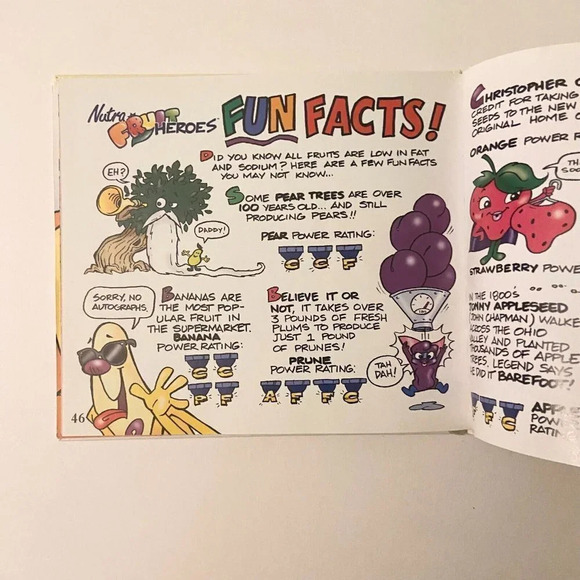 Nutra
FRUIT
HEROES
FUN FACTS!
DID YOU KNOW ALL FRUITS ARE LOW IN FAT
AND SODIUM? HERE ARE A FEW FUN FACTS
YOU MAY NOT KNOW...
EH?
DADDY!
SOME PEAR TREES ARE OVER
100 YEARS OLD... AND STILL
PRODUCING PEARS!!
PEAR POWER RATING:
SORRY, NO
AUTOGRAPHS.
BANANAS ARE
THE MOST POP-
ULAR FRUIT IN
THE SUPERMARKET.
BANANA
POWER RATING:
BELIEVE IT OR
NOT, IT TAKES OVER
3 POUNDS OF FRESH
PLUMS TO PRODUCE
JUST 1 POUND
OF PRUNES!
PRUNE
POWER RATING:
P F
A F F C
TAH
DAH!
46
CHRISTOPHER
CREDIT FOR TAKING
SEEDS TO THE NEW
ORIGINAL HOME
ORANGE POWER
STRAWBERRY
IN THE 1800'S
APPLESEED
CHAPMAN)
ACROSS THE OHIO
VALLEY AND PLANTED
THOUSANDS OF APPLE
TREES. LEGEND SAYS
HE DID IT BAREFOOT!
F F C